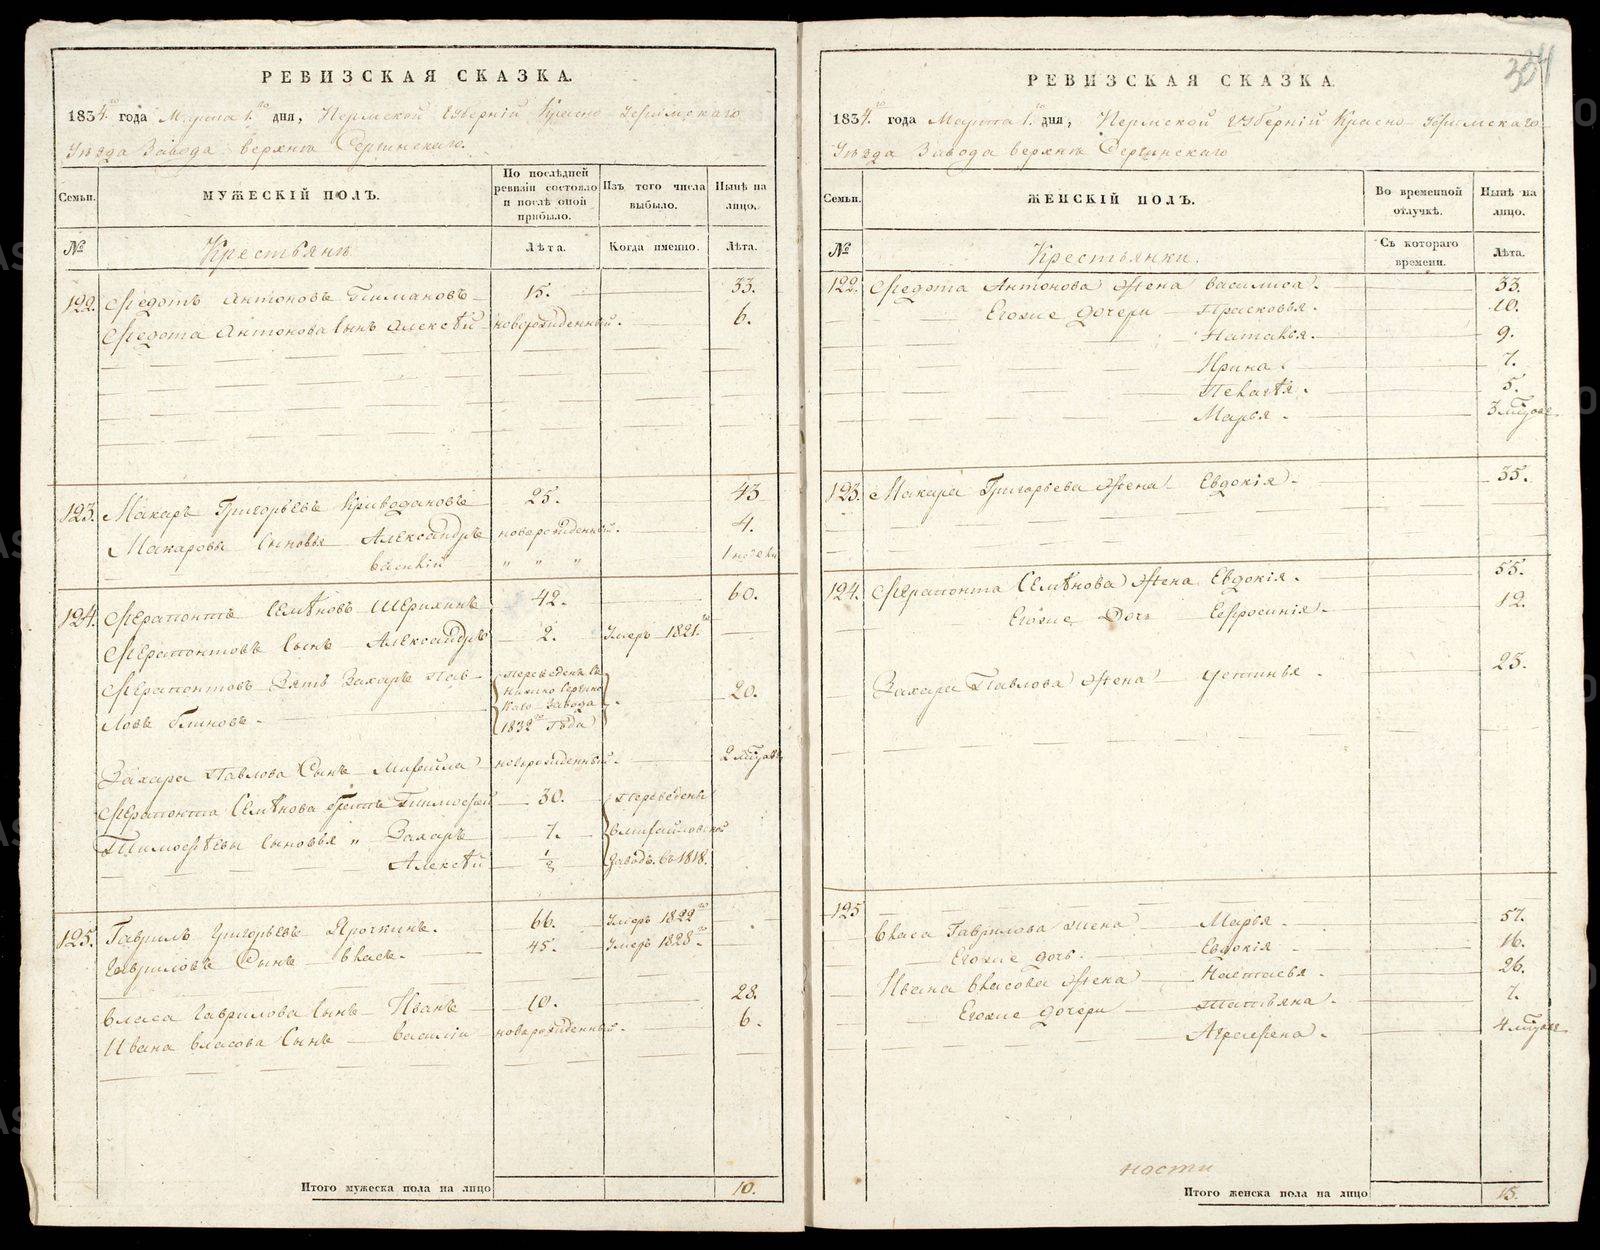 РЕВИЗСКАЯ СКАЗКА.
1834.го года Марта 1.го дня, Пермской Губерніи Красно-Уфимскаго
Уезда Завода верхнѣ Сергинскаго.
Семьи.
МУЖЕСКІЙ ПОЛЪ.
По послѣдней ревизіи состояло и послѣ оной прибыло.
Изъ того числа выбыло.
Нынѣ на лицо.
№
Крестьянъ
Лѣта.
Когда именно.
Лѣта.
122. Федотъ Антоновъ 15. 33.
Федота Антонова Сынъ Алексѣй новорожденный. 6.
123. Макаръ Григорьевъ 25. 43
Макаровы Сыновья Александръ новорожденный. 4.
Василій „ „ „
124. Ферапонтъ Семѣновъ Шерихинъ 42. 60.
Ферапонтовъ Сынъ Александръ 2. Умеръ 1821.го
Ферапонтовъ Зять Захаръ Пав- переведенъ съ 20.
ловъ Блиновъ. Нижно Сергин
скаго Завода
1832го Года
Захара Павлова Сынъ Михайла новорожденный. 2 мѣсяцовъ
Ферапонта Семѣнова братъ Тимофей 30. Переведены
Тимофѣевы Сыновья „ Захаръ 7. в михайловской
Алексѣй ½ Заводъ. въ 1818.
125. Гаврилъ Григорьевъ Ярочкинъ. 66. Умеръ 1822го
Гавриловъ Сынъ Власъ. 45. Умеръ 1828го
Власа Гаврилова Сынъ Иванъ 10. 28.
Ивана Власова Сынъ Василій новорожденный. 6.
Итого мужеска пола на лицо 10.
304
РЕВИЗСКАЯ СКАЗКА.
1834.го года Марта 1.го дня, Пермской Губерніи Красно-Уфимскаго
Уезда Завода верхнѣ Сергинскаго
Семьи.
ЖЕНСКІЙ ПОЛЪ.
Во временной отлучкѣ.
Нынѣ на лицо.
№
Крестьянки.
Съ котораго времени.
Лѣта.
122. Федота Антонова Жена Василиса. 33.
Егоже дочери Прасковья. 10.
Наталья. 9.
Ирина. 7.
Пелагѣя. 5.
Марья. 3 мѣсяцов.
123. Макара Григорьева Жена Евдокія. 35.
124. Ферапонта Семѣнова Жена Евдокія. 55.
Егоже Дочь Ефросинія. 12.
Захара Павлова Жена Устинья. 25.
125 Власа Гаврилова Жена Марья. 57.
Егоже дочь. Евдокія. 16.
Ивана Власова Жена Настасья. 26.
Егоже дочери Татьяна. 7.
Агрефена. 4 мѣсяцов.
ности
Итого женска пола на лицо 15.